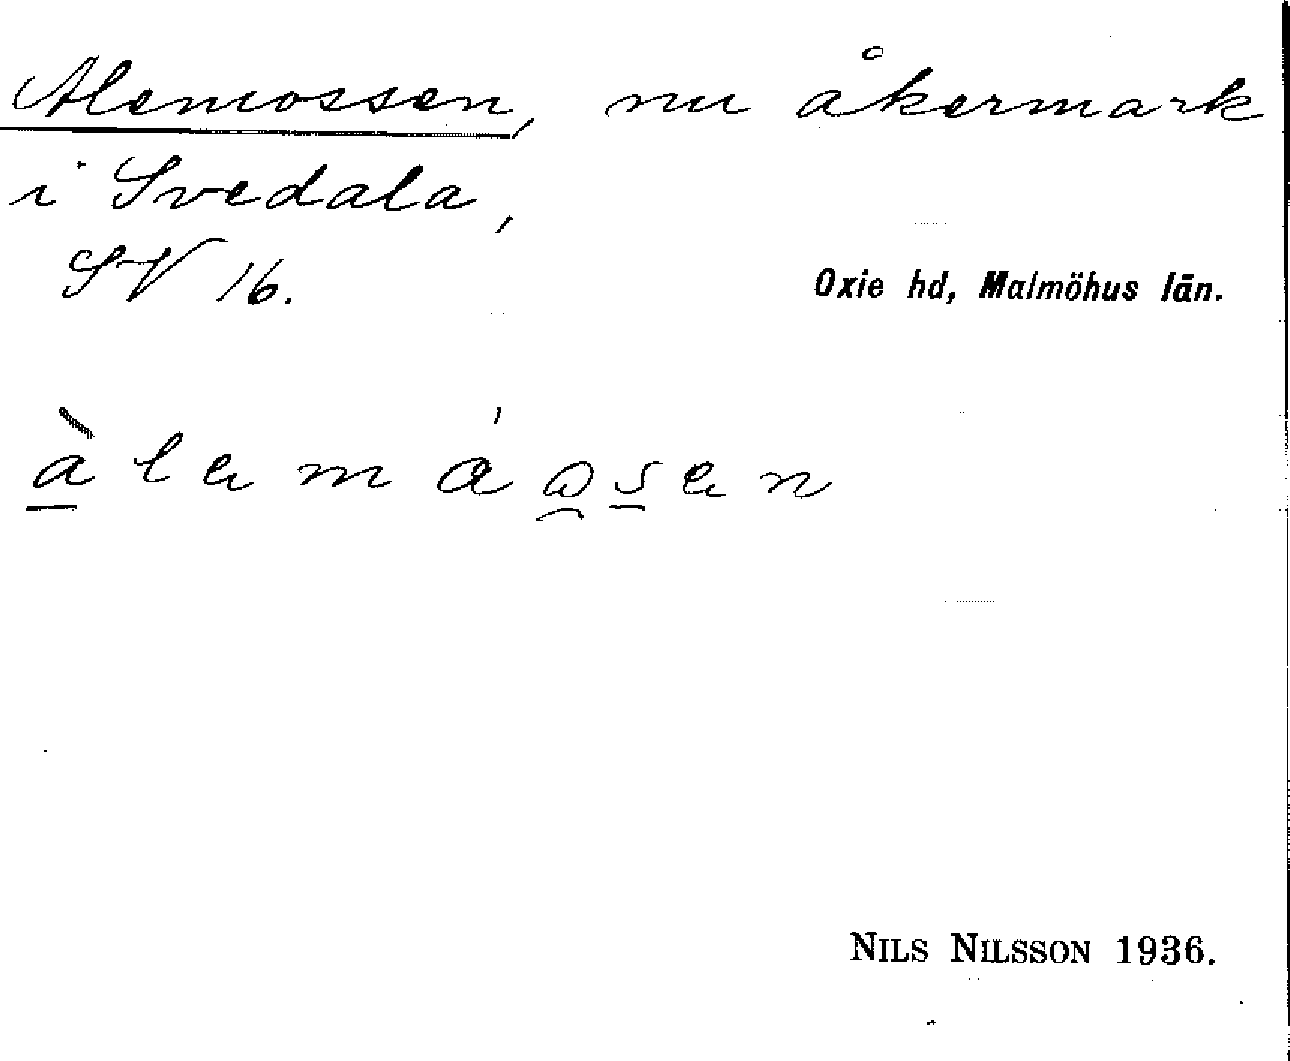 Alemossen, nu åkermark
i Svedala,
SV 16.
Oxie hd, Malmöhus län.
NILS NILSSON 1936.